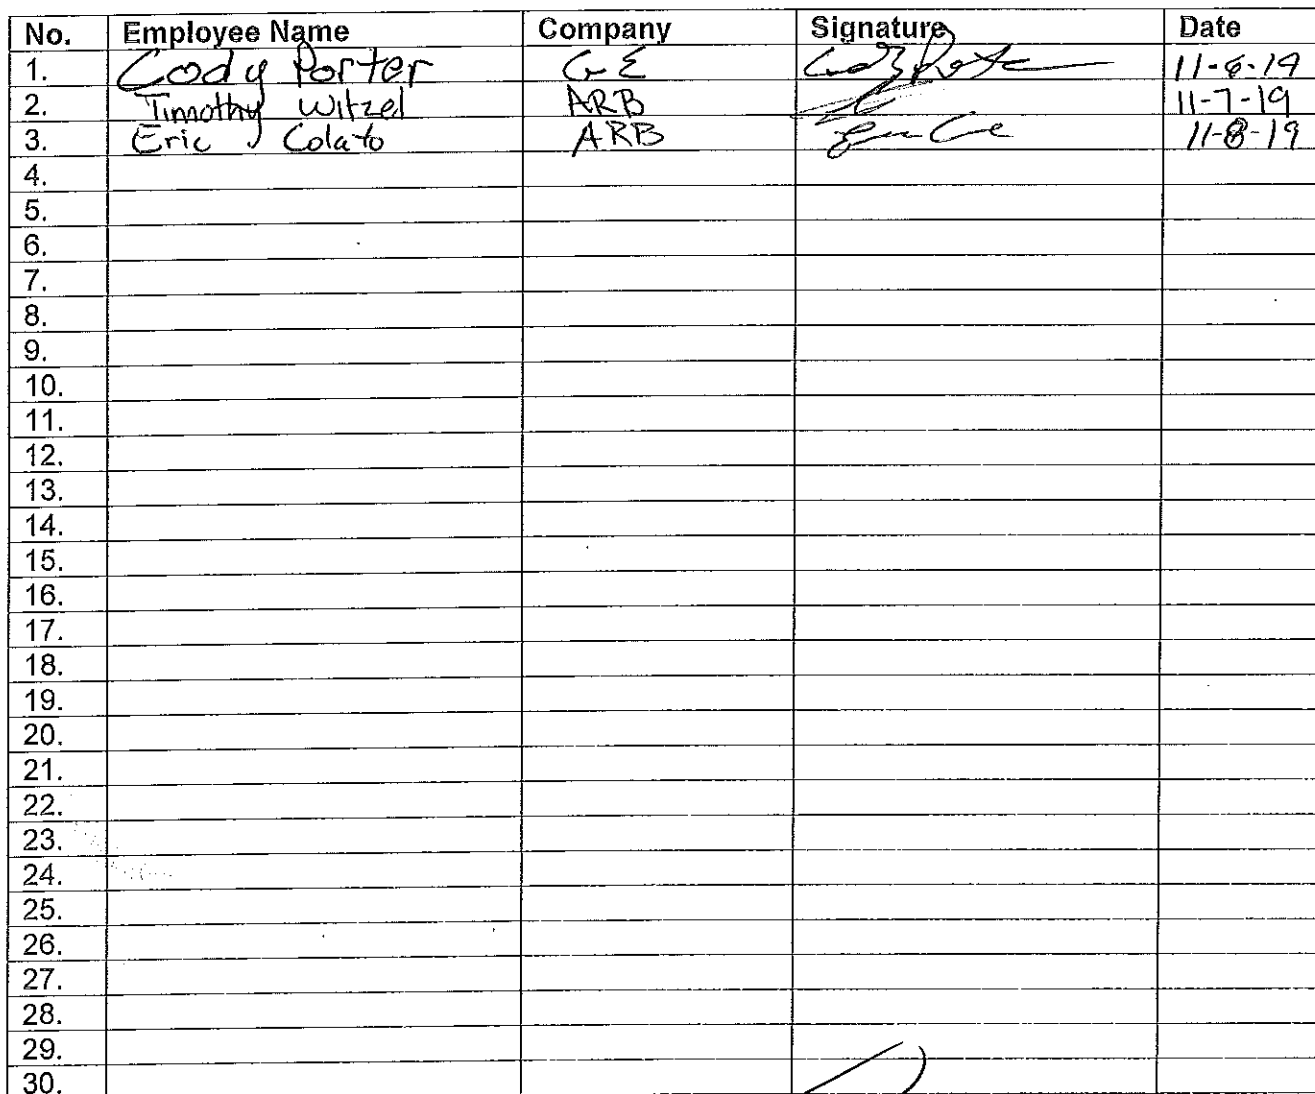 No. Employee Name Company Signature Date
1. Cody Porter GE Cody Porter 11-6-19
2. Timothy Witzel ARB 11-7-19
3. Eric Colato ARB 11-8-19
4.
5.
6.
7.
8.
9.
10.
11.
12.
13.
14.
15.
16.
17.
18.
19.
20.
21.
22.
23.
24.
25.
26.
27.
28.
29.
30.